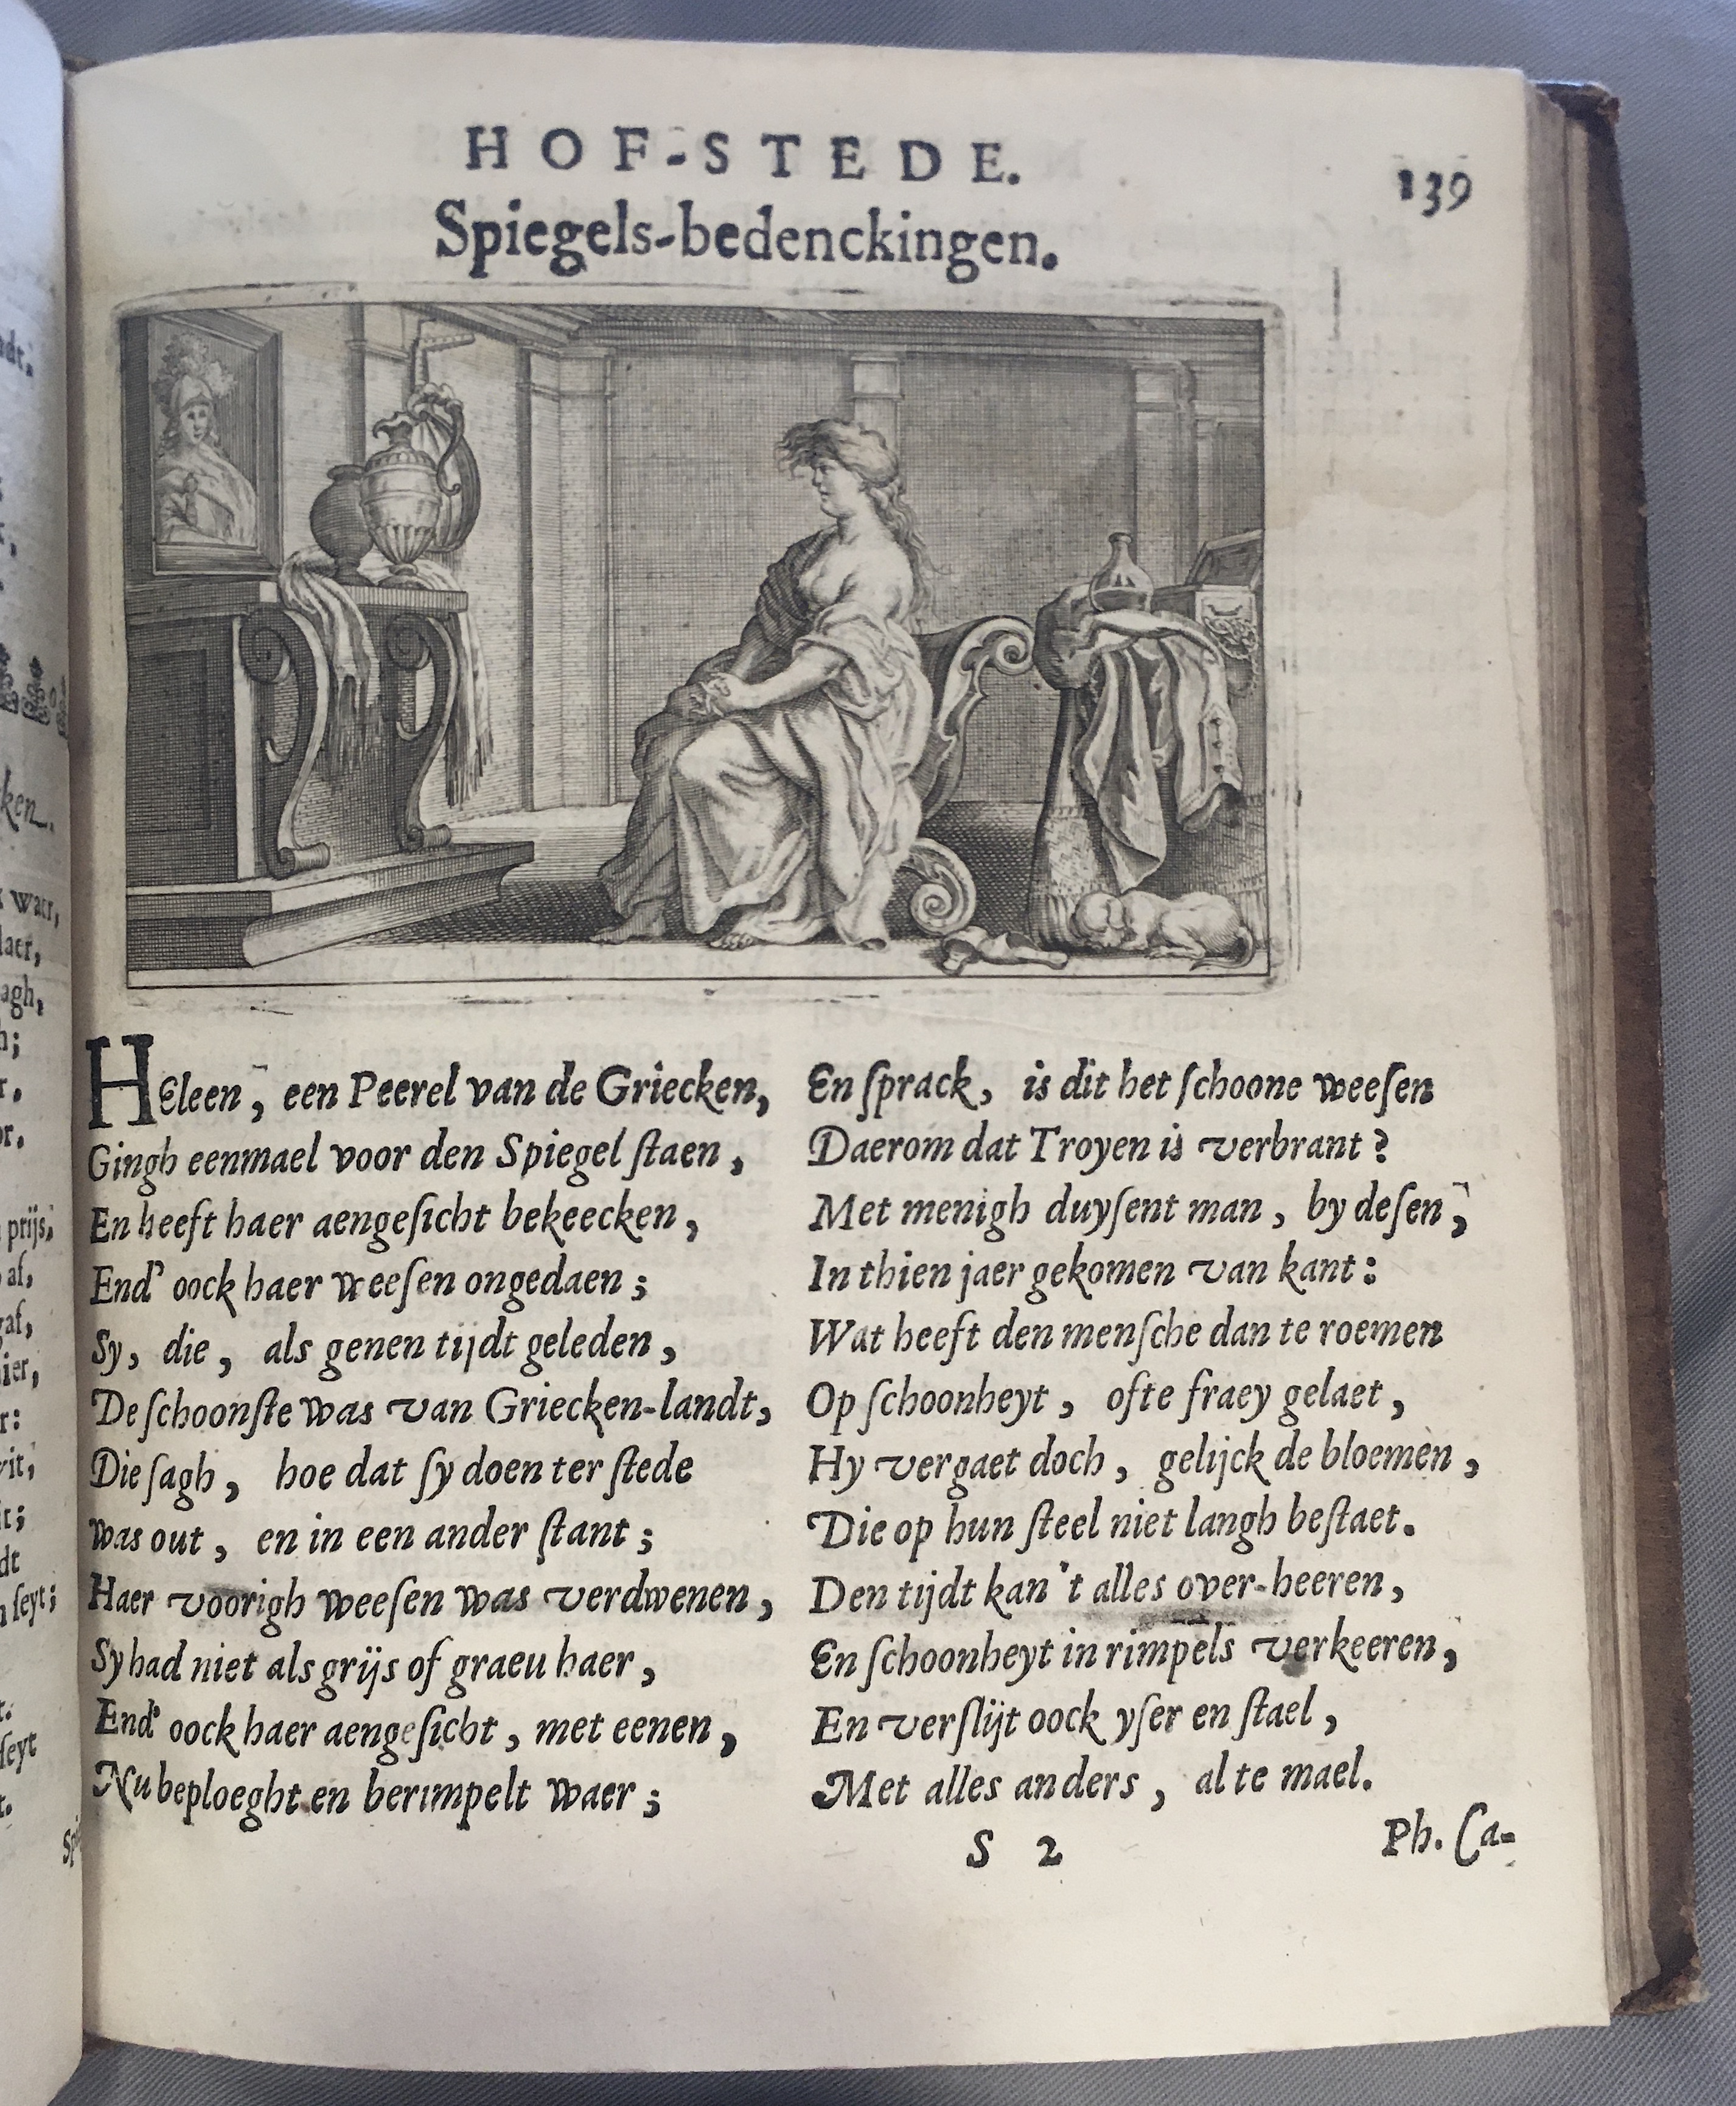 HOF-STEDE.
139
Spiegels-bedenckingen.
HEleen, een Peerel van de Griecken,
Gingh eenmael voor den Spiegel ſtaen,
En heeft haer aengeſicht bekeecken,
End' oock haer weeſen ongedaen;
Sy, die, als genen tijdt geleden,
De ſchoonſte was van Griecken-landt,
Die ſagh, hoe dat ſy doen ter ſtede
Was out, en in een ander ſtant;
Haer voorigh weeſen was verdwenen,
Sy had niet als grijs of graeu haer,
End' oock haer aengeſicht, met eenen,
Nu beploeght en berimpelt waer;
En ſprack, is dit het ſchoone weeſen
Daerom dat Troyen is verbrant?
Met menigh duyſent man, by deſen,
In thien jaer gekomen van kant:
Wat heeft den menſche dan te roemen
Op ſchoonheyt, ofte fraey gelaet,
Hy vergaet doch, gelijck de bloemen,
Die op hun ſteel niet langh beſtaet.
Den tijdt kan 't alles over-heeren,
En ſchoonheyt in rimpels verkeeren,
En verſlijt oock yſer en ſtael,
Met alles anders, al te mael.
S 2
Ph. Ca-